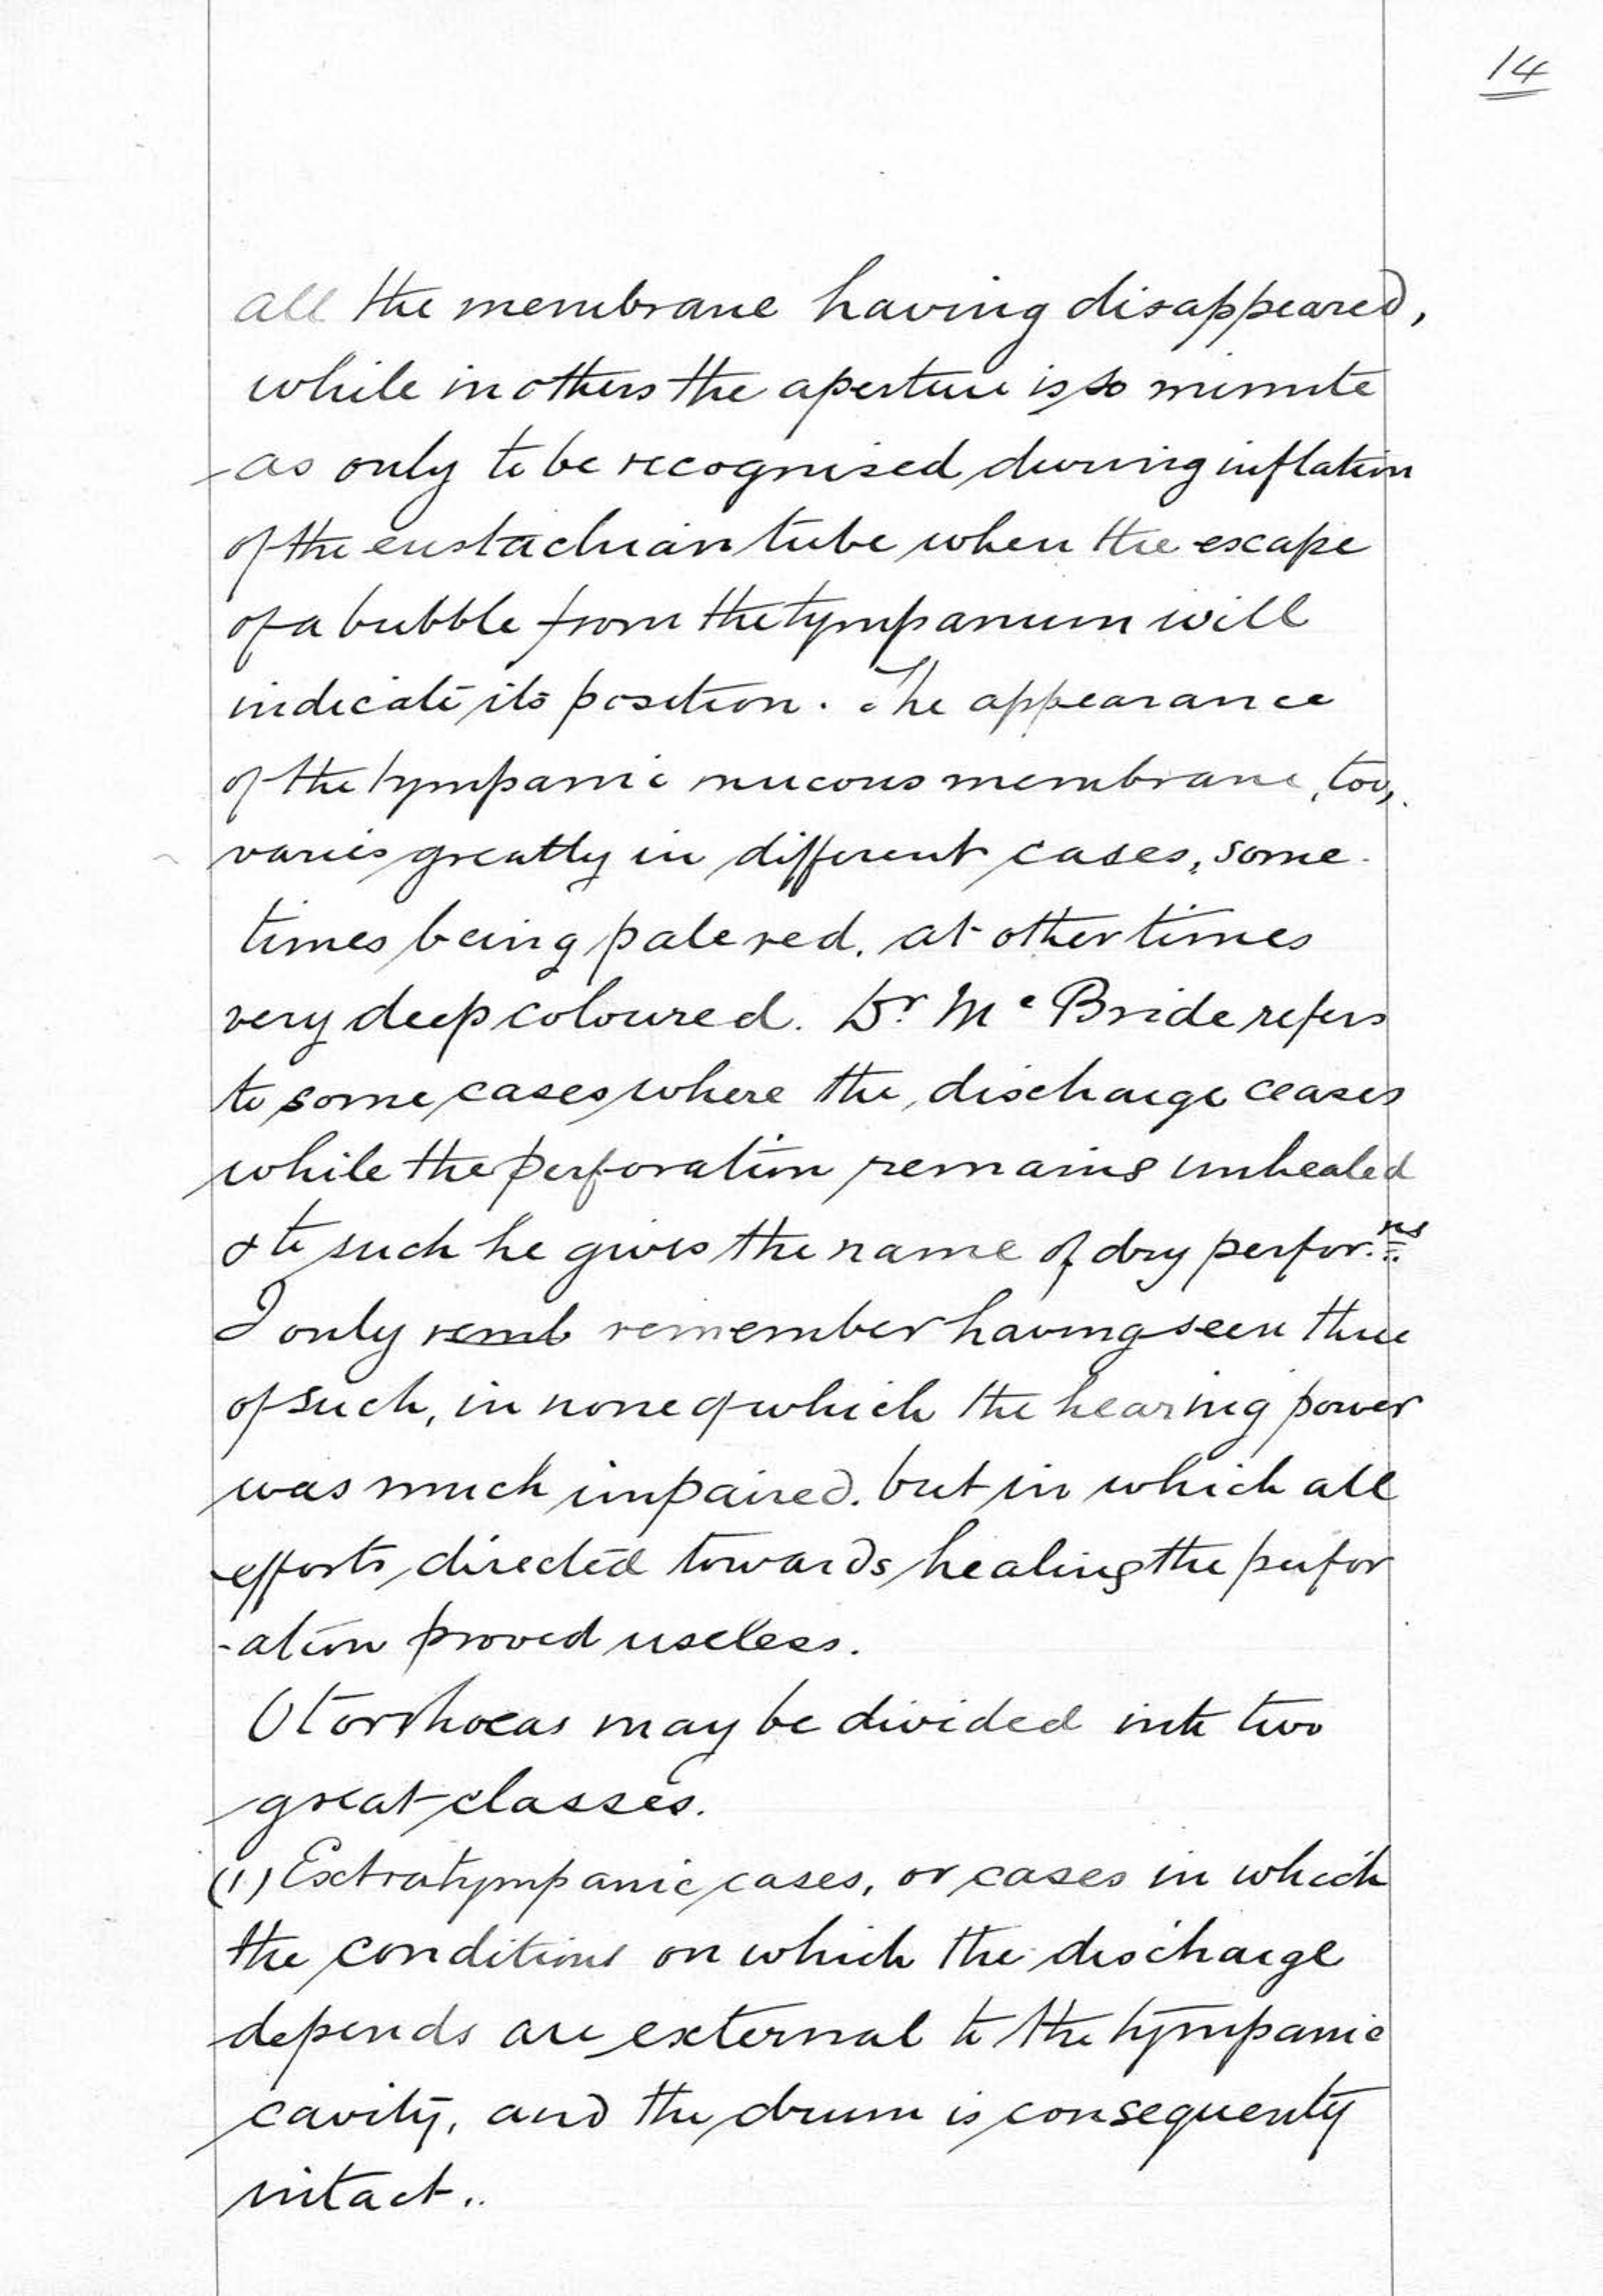 14
all the membrane having disappeared,
while in others the aperture is so minute
as only to be recognised during inflation
of the eustachian tube when the escape
of a bubble from the tympanum will
indicate its position. The appearance
of the tympanic mucous membrane, too,
varies greatly in different cases, some-
times being pale red, at other times
very deep coloured. Dr. McBride refers
to some cases where the discharge ceases
while the perforation remains unhealed
& to such he gives the name of dry perfor.ns
I only remb remember having seen three
of such, in none of which the hearing power
was much impaired, but in which all
efforts directed towards healing the perfor
-ation proved useless.
Otorrhoeas may be divided into two
great classes.
(1) Extratympanic cases, or cases in which
the conditions on which the discharge
depends are external to the tympanic
cavity, and the drum is consequently
intact..